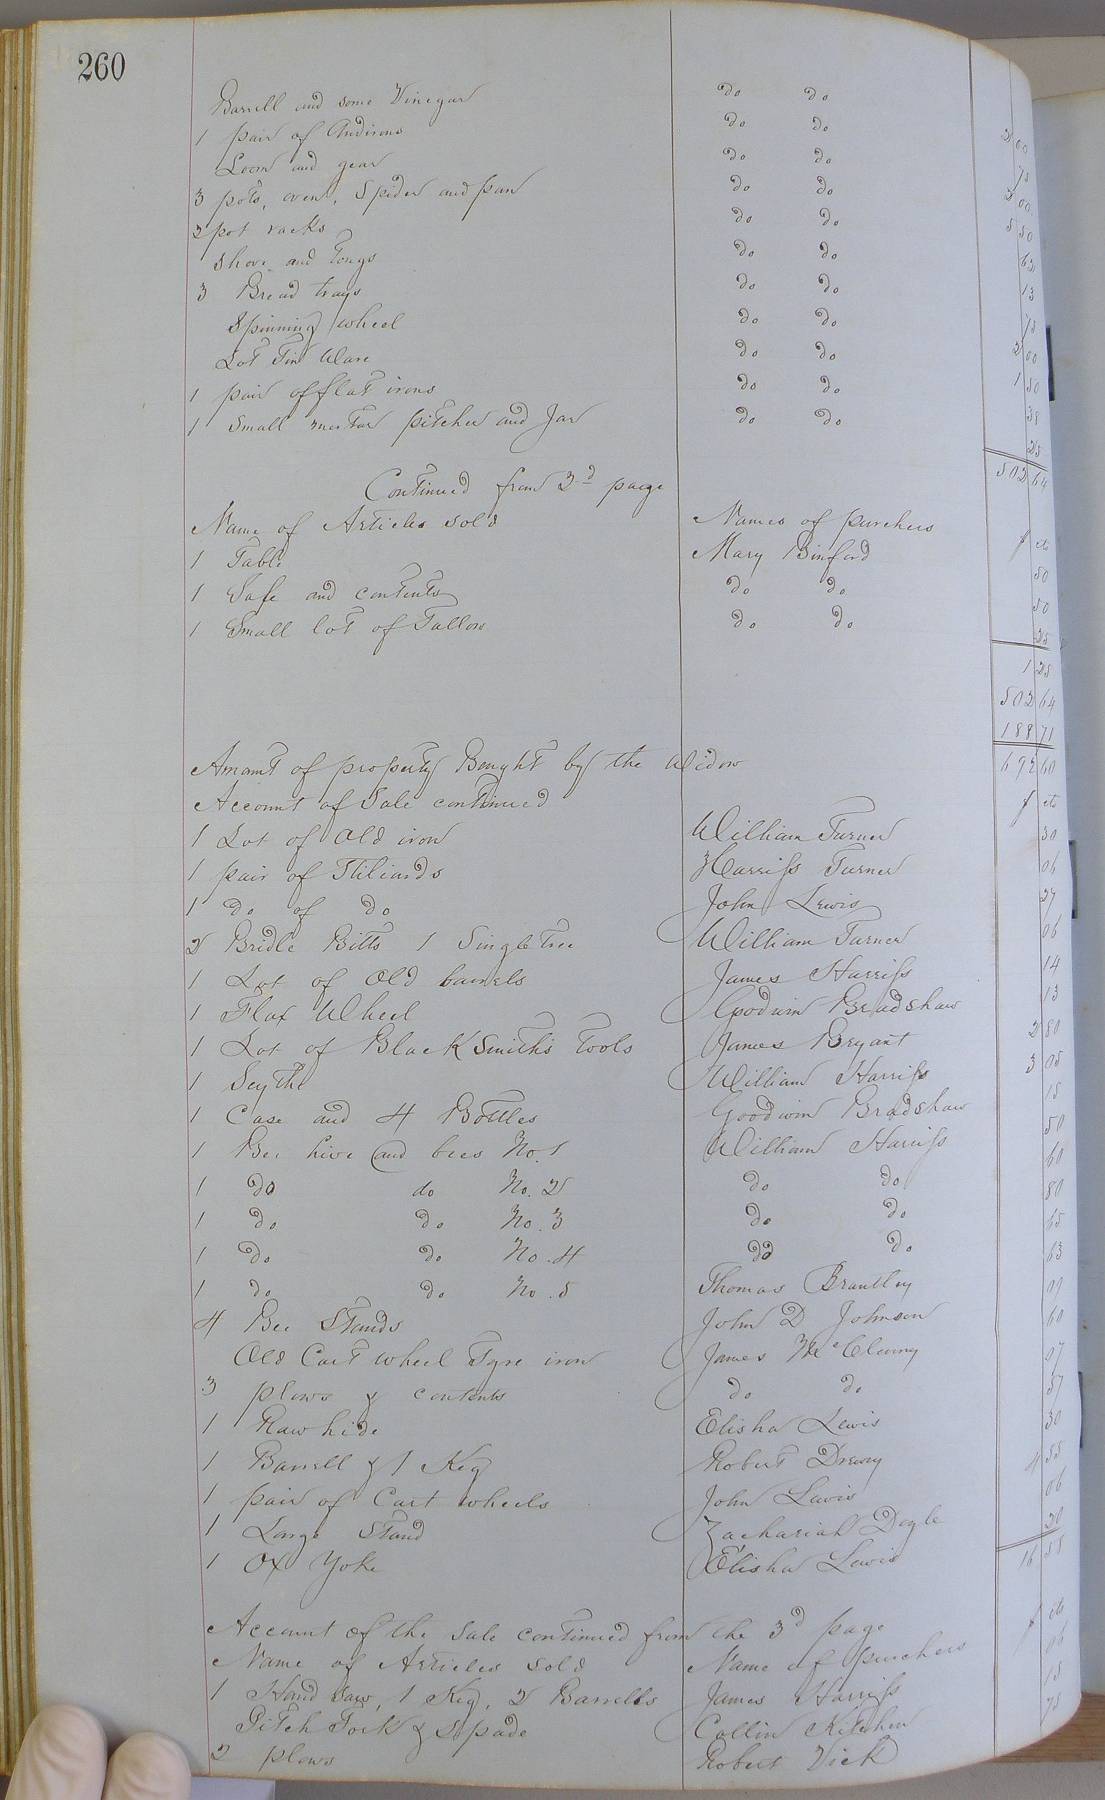 260
Barrell and some Vinegar do do
1 pair of Andirons do do 2 00
Loom and gear do do 75
3 pots, oven, Spider and pan do do 3 00
2 pot racks do do 5 50
Shove and Tongs do do 62
3 Bread trays do do 13
Spinning wheel do do 75
Lot Tin Ware do do 2 00
1 pair of flat irons do do 1 50
1 Small mortar pitcher and Jar do do 38
25
Continued from 3d page 502 64
Name of Articles sold Names of purchers
1 Table Mary Binford $ cts
1 Safe and contents do do 50
1 Small lot of Tallow do do 50
25
1 25
502 64
188 71
Amount of property Bought by the Widow 692 60
Account of Sale continued $ cts
1 Lot of Old iron William Turner 30
1 pair of Stiliards Harriss Turner 06
1 do of do John Lewis 27
2 Bridle Bitts 1 Singletree William Turner 06
1 Lot of Old barrels James Harriss 14
1 Flax Wheel Goodwin Bradshaw 13
1 Lot of Black Smith's Tools James Bryant 2 80
1 Scythe William Harriss 3 05
1 Case and 4 Bottles Goodwin Bradshaw 15
1 Bee hive and bees No. 1 William Harriss 50
1 do do No. 2 do do 60
1 do do No. 3 do do 80
1 do do No. 4 do do 65
1 do do No. 5 Thomas Brantley 63
4 Bee Stands John D Johnson 09
Old Cart wheel Tyre iron James McClenny 60
3 plows & contents do do 07
1 Rawhide Elisha Lewis 57
1 Barrell & 1 Keg Robert Drewry 30
1 pair of Cart wheels John Lewis 4 55
1 Large Stand Zachariah Doyle 06
1 Ox Yoke Elisha Lewis 20
16 58
Account of the Sale continued from the 3d page
Name of Articles sold Name of purchers $ cts
1 Hand Saw, 1 Keg, 2 Barrells James Harriss 06
Pitch Fork & Spade Collin Kitchen 15
2 plows Robert Vick 75